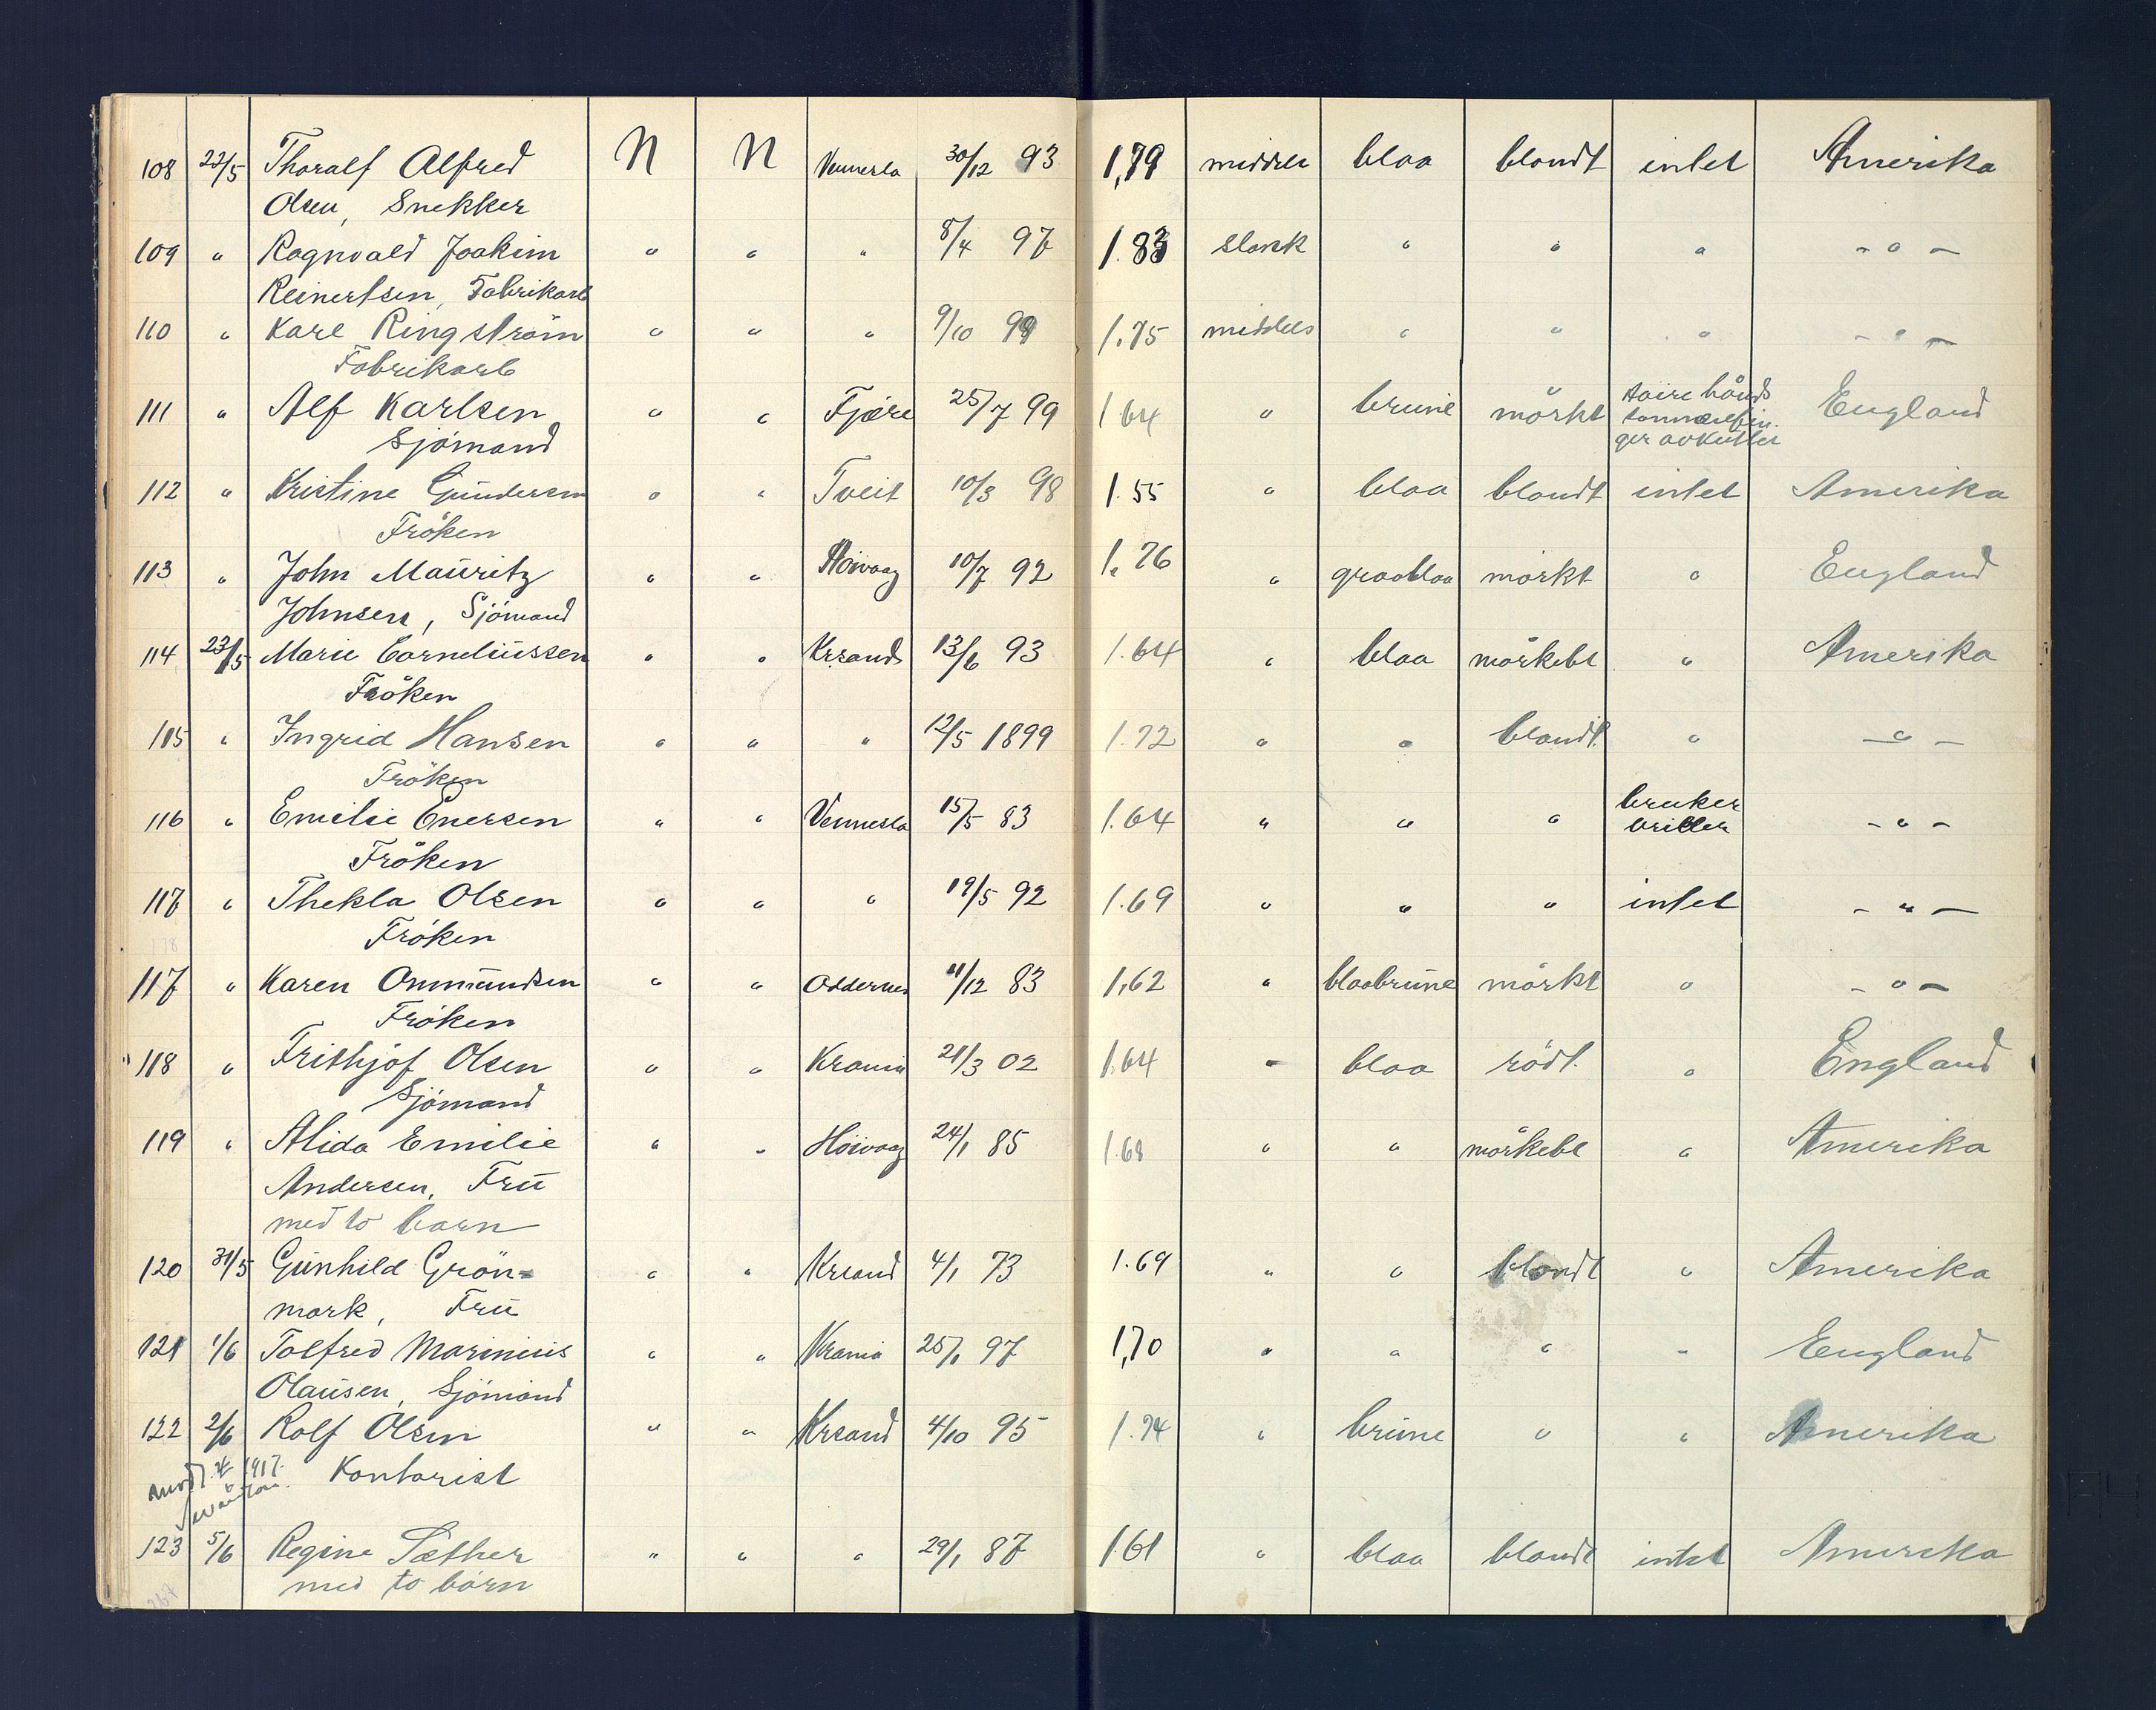 108 22/5 Thoralf Alfred N N Vennesla 30/12 93 1,79 middels blaa blondt intet Amerika
Olsen, Snekker
109 " Ragnvald Joakim " " " 8/4 97 1.83 slank " " " - " -
Reinertsen, Fabrikarb
110 " Karl Ringström " " " 9/10 99 1.75 middels " " " - " -
Fabrikarb
111 " Alf Karlsen " " Fjære 25/7 99 1 64 " brune mörkt höire hånds England
Sjömand tommelfin-
ger avkuttet
112 " Kristine Gundersen " " Tveit 10/3 98 1.55 " blaa blondt intet Amerika
Fröken
113 " John Mauritz " " Höivaag 10/7 92 1.76 " graablaa mörkt " England
Johnsen, Sjömand
114 23/5 Marie Corneliussen " " Krsands 13/6 93 1.64 " blaa mörkebl " Amerika
Fröken
115 " Ingrid Hansen " " " 12/5 1899 1.72 " " blondt " - " -
Fröken
116 " Emilie Enersen " " Vennesla 15/5 83 1.64 " " " bruker - " -
briller
Fröken
117 " Thekla Olsen " " " 19/5 92 1.69 " " " intet - " -
Fröken
117 " Karen Ommundsen " " Oddernes 11/12 83 1,62 " blaabrune mörkt " - " -
Fröken
118 " Frithjof Olsen " " Krania 21/3 02 1.64 - blaa rödt. " England
Sjömand
119 " Alida Emilie " " Höivaag 24/1 85 1.68 " " mörkebl " Amerika
Andersen, Fru
med to barn
120 31/5 Gunhild Grön- " " Krsand 4/1 73 1.69 " " blondt " Amerika
mark, Fru
121 1/6 Tolfred Marinius " " Krania 25/1 97 1,70 " " " " England
Olausen, Sjömand
122 2/6 Rolf Olsen " " Krsand 4/10 95 1.74 " brune " " Amerika
Kontorist
1917.
123 5/6 Regine Sæther " " " 29/1 87 1.61 " blaa blondt intet Amerika
med to börn